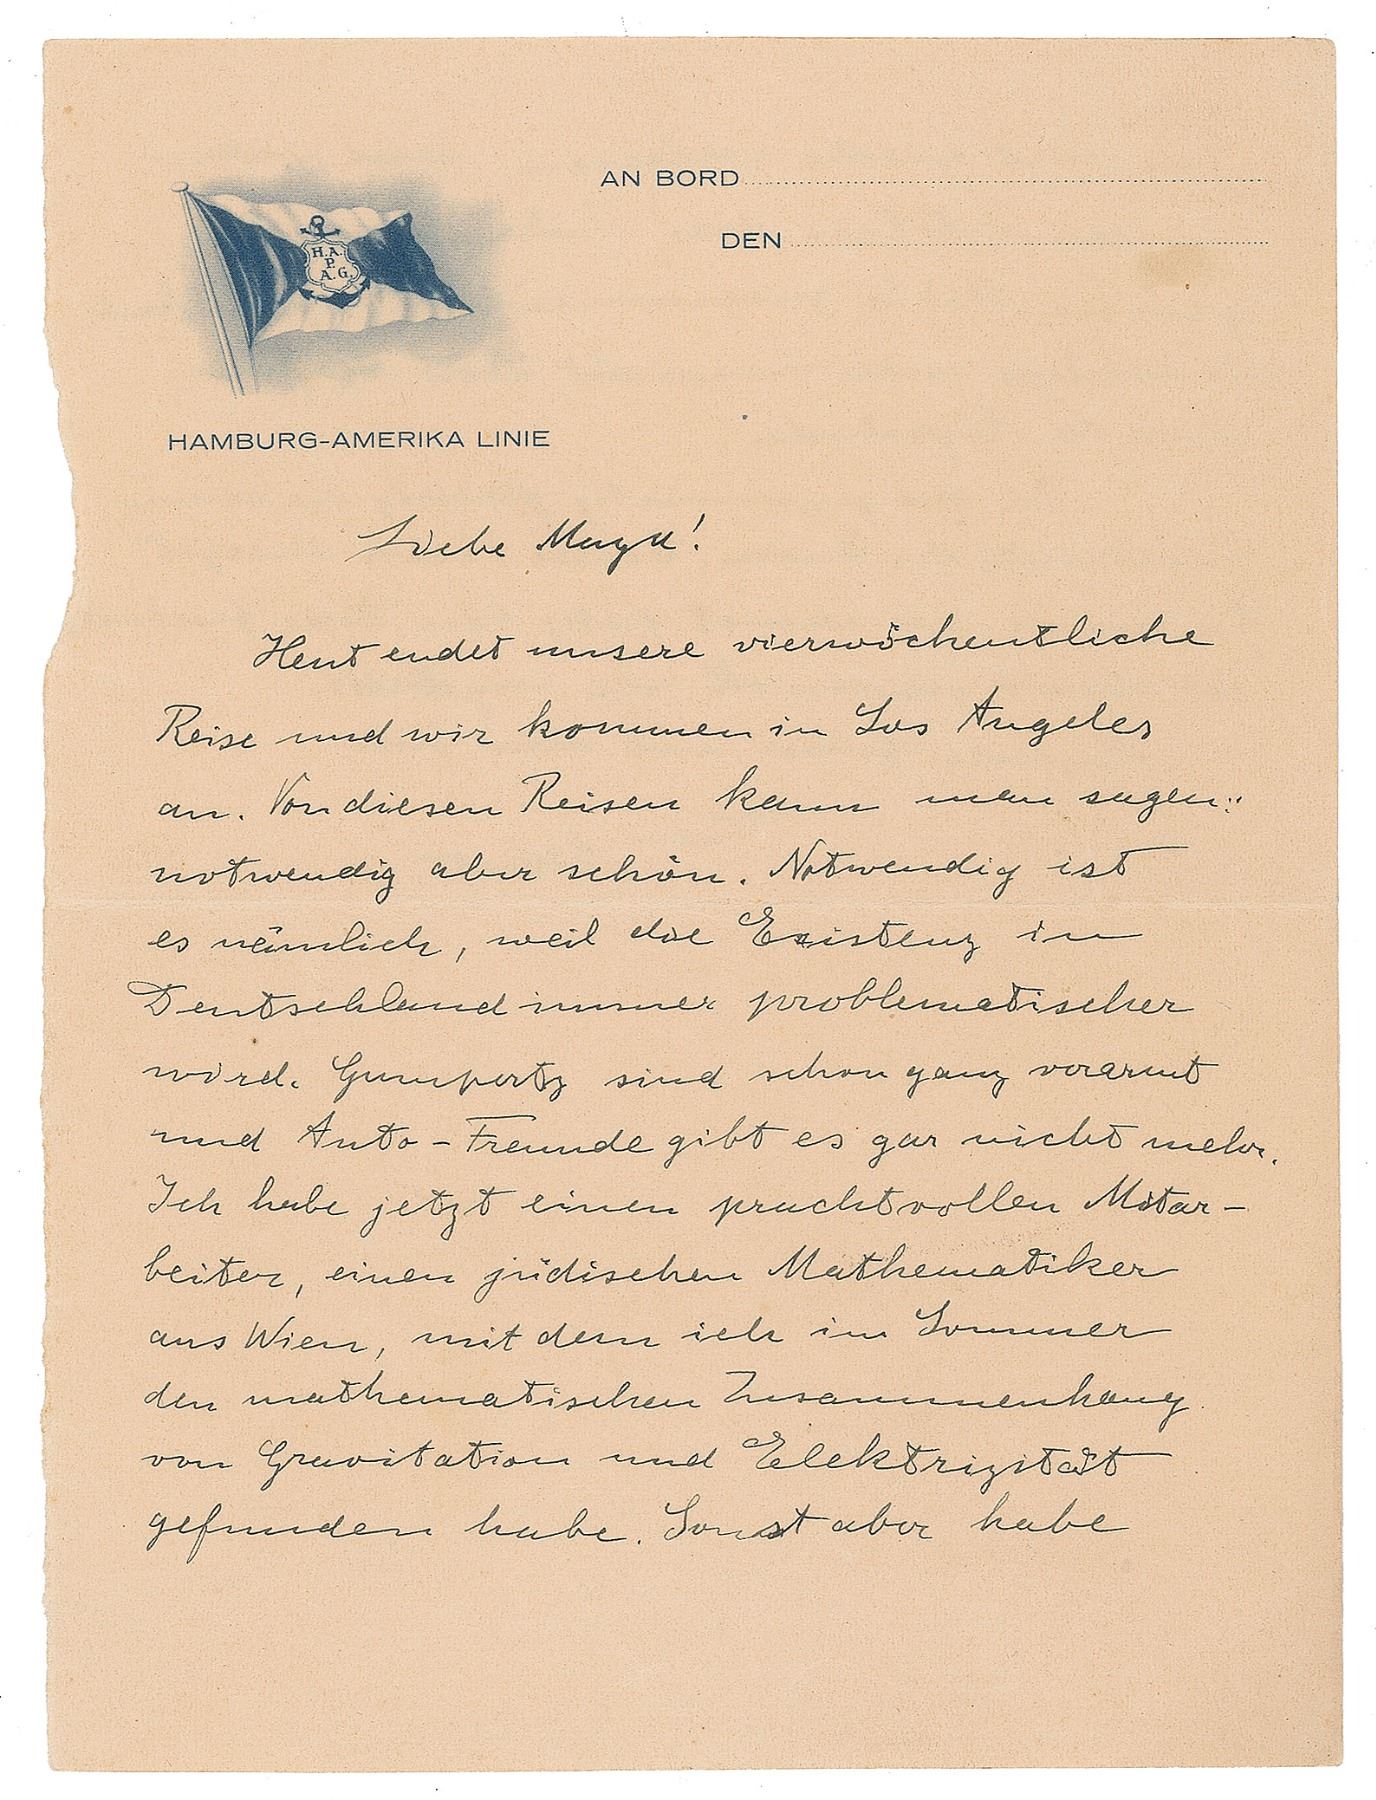 AN BORD
DEN
H.A.
P.
A.G.
HAMBURG-AMERIKA LINIE
Liebe Maya!
Heut endet unsere vierwöchentliche
Reise und wir kommen in Los Angeles
an. Von diesen Reisen kann man sagen:
notwendig aber schön. Notwendig ist
es nämlich, weil die Existenz in
Deutschland immer problematischer
wird. Gumpertz sind schon ganz verarmt
und Auto-Freunde gibt es gar nicht mehr.
Ich habe jetzt einen prachtvollen Mitar-
beiter, einen jüdischen Mathematiker
aus Wien, mit dem ich im Sommer
den mathematischen Zusammenhang
von Gravitation und Elektrizität
gefunden habe. Sonst aber habe